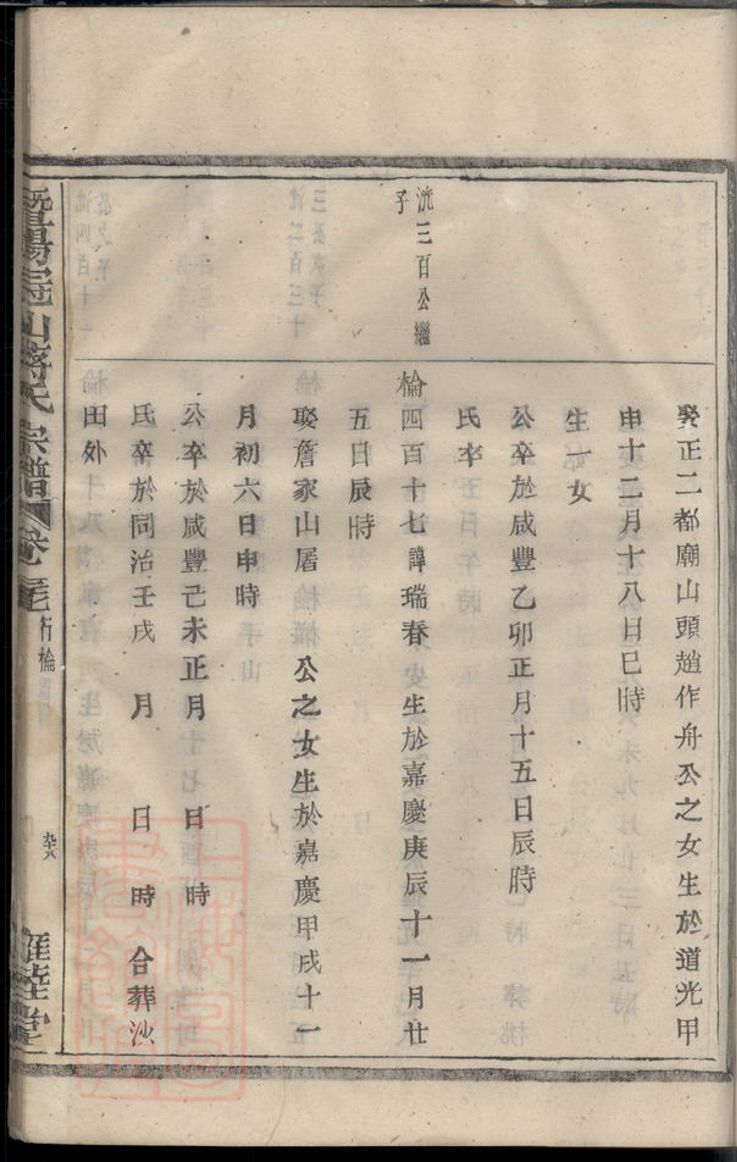 娶正二都廟山頭趙作舟公之女生於道光甲
申十二月十八日巳時
生一女
公卒於咸豐乙卯正月十五日辰時
氏卒
洸三百公繼
子
楡四百十七諱瑞春 生於嘉慶庚辰十一月廿
五日辰時
娶詹家山屠 公之女生於嘉慶甲戌十一
月初六日申時
公卒於咸豐己未正月 日 時
氏卒於同治壬戌 月 日 時 合葬沙
田外
暨陽冠山蔣氏宗譜 卷 行楡
雍睦堂